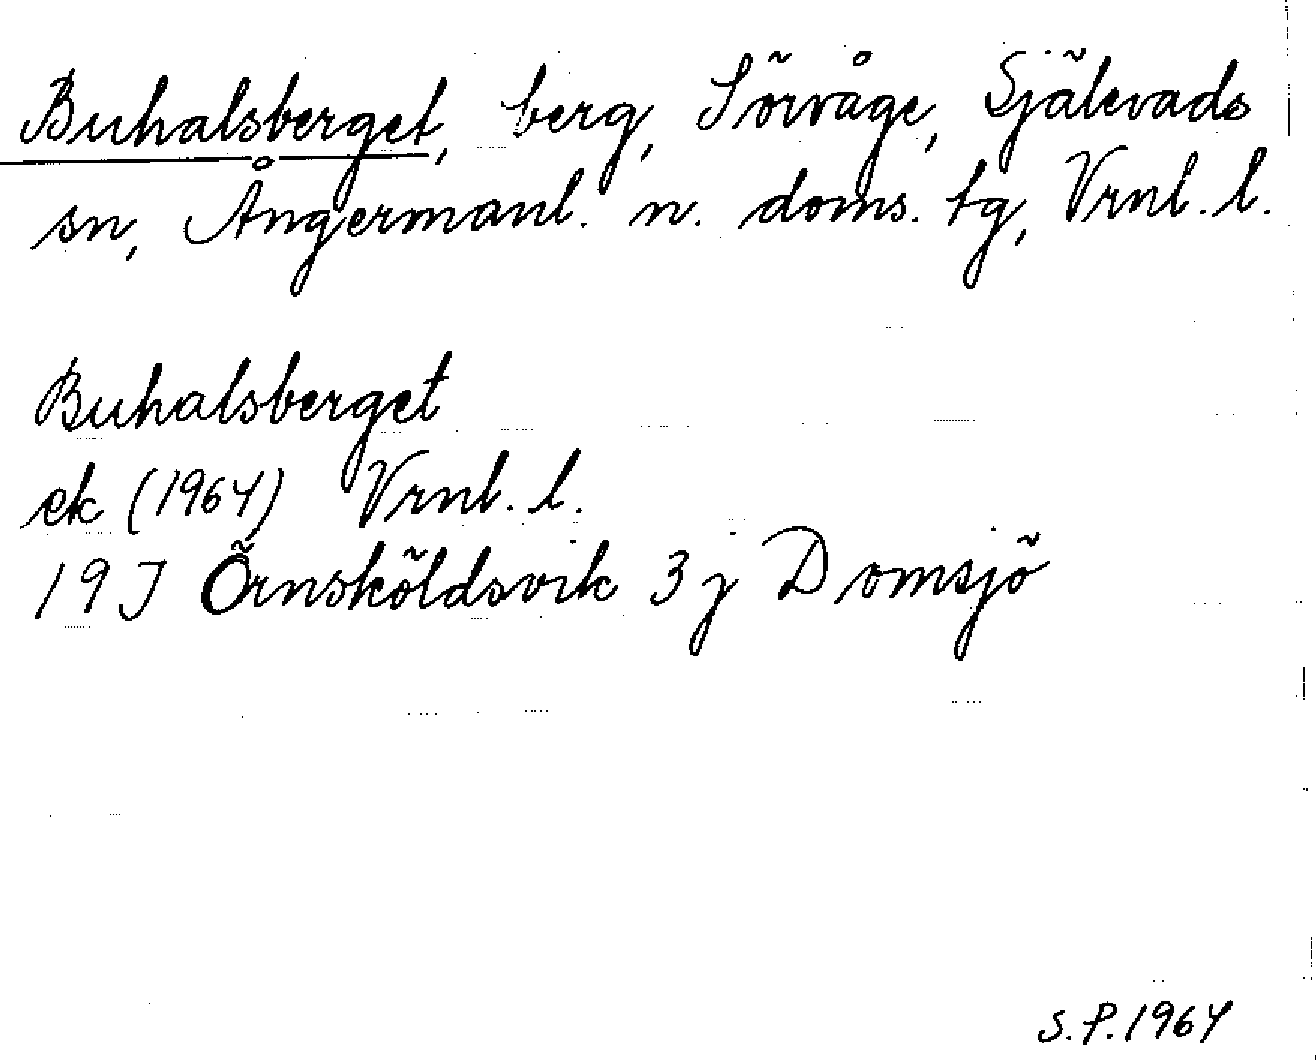 Buhalsberget, berg, Sörvåge, Själevads
sn, Ångermanl. n. doms. tg, Vrnl. l.
Buhalsberget
ek (1964) Vrnl. l.
19J Örnsköldsvik 3j Domsjö
S.P. 1964